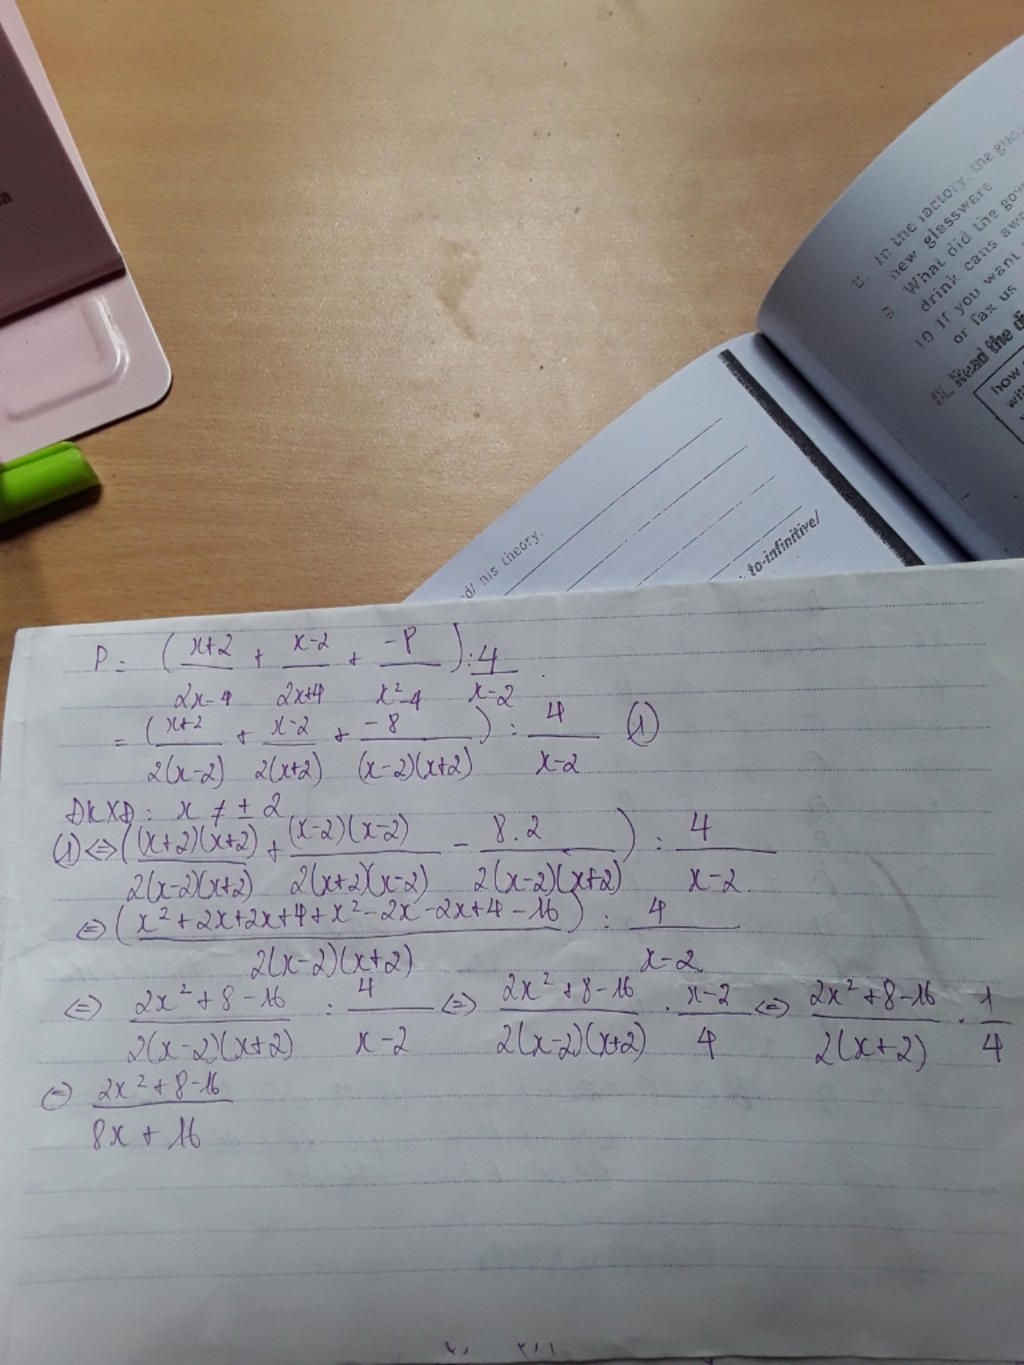 a
8. In the factory, the glass
new glassware.
9. What did the gov
drink cans awa
10. If you want
or fax us
III. Read the di
how
wit
d/ his theory.
to-infinitive/
P = (x+2/2x-4 + x-2/2x+4 + -8/x²-4) : 4/x-2
= (x+2/2(x-2) + x-2/2(x+2) + -8/(x-2)(x+2)) : 4/x-2 (1)
ĐKXĐ: x ≠ ± 2
(1) <=> ((x+2)(x+2)/2(x-2)(x+2) + (x-2)(x-2)/2(x+2)(x-2) - 8.2/2(x-2)(x+2)) : 4/x-2
<=> (x²+2x+2x+4+x²-2x-2x+4-16/2(x-2)(x+2)) : 4/x-2
<=> 2x²+8-16/2(x-2)(x+2) : 4/x-2 <=> 2x²+8-16/2(x-2)(x+2) . x-2/4 <=> 2x²+8-16/2(x+2) . 1/4
<=> 2x²+8-16/8x+16